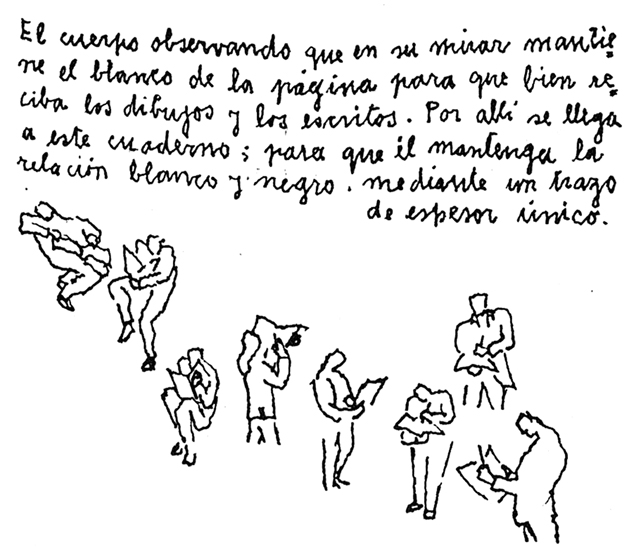 El cuerpo observando que en su mirar mantie=
ne el blanco de la página para que bien re=
ciba los dibujos y los escritos. Por allí se llega
a este cuaderno; para que él mantenga la
relación blanco y negro. mediante un trazo
de espesor único.